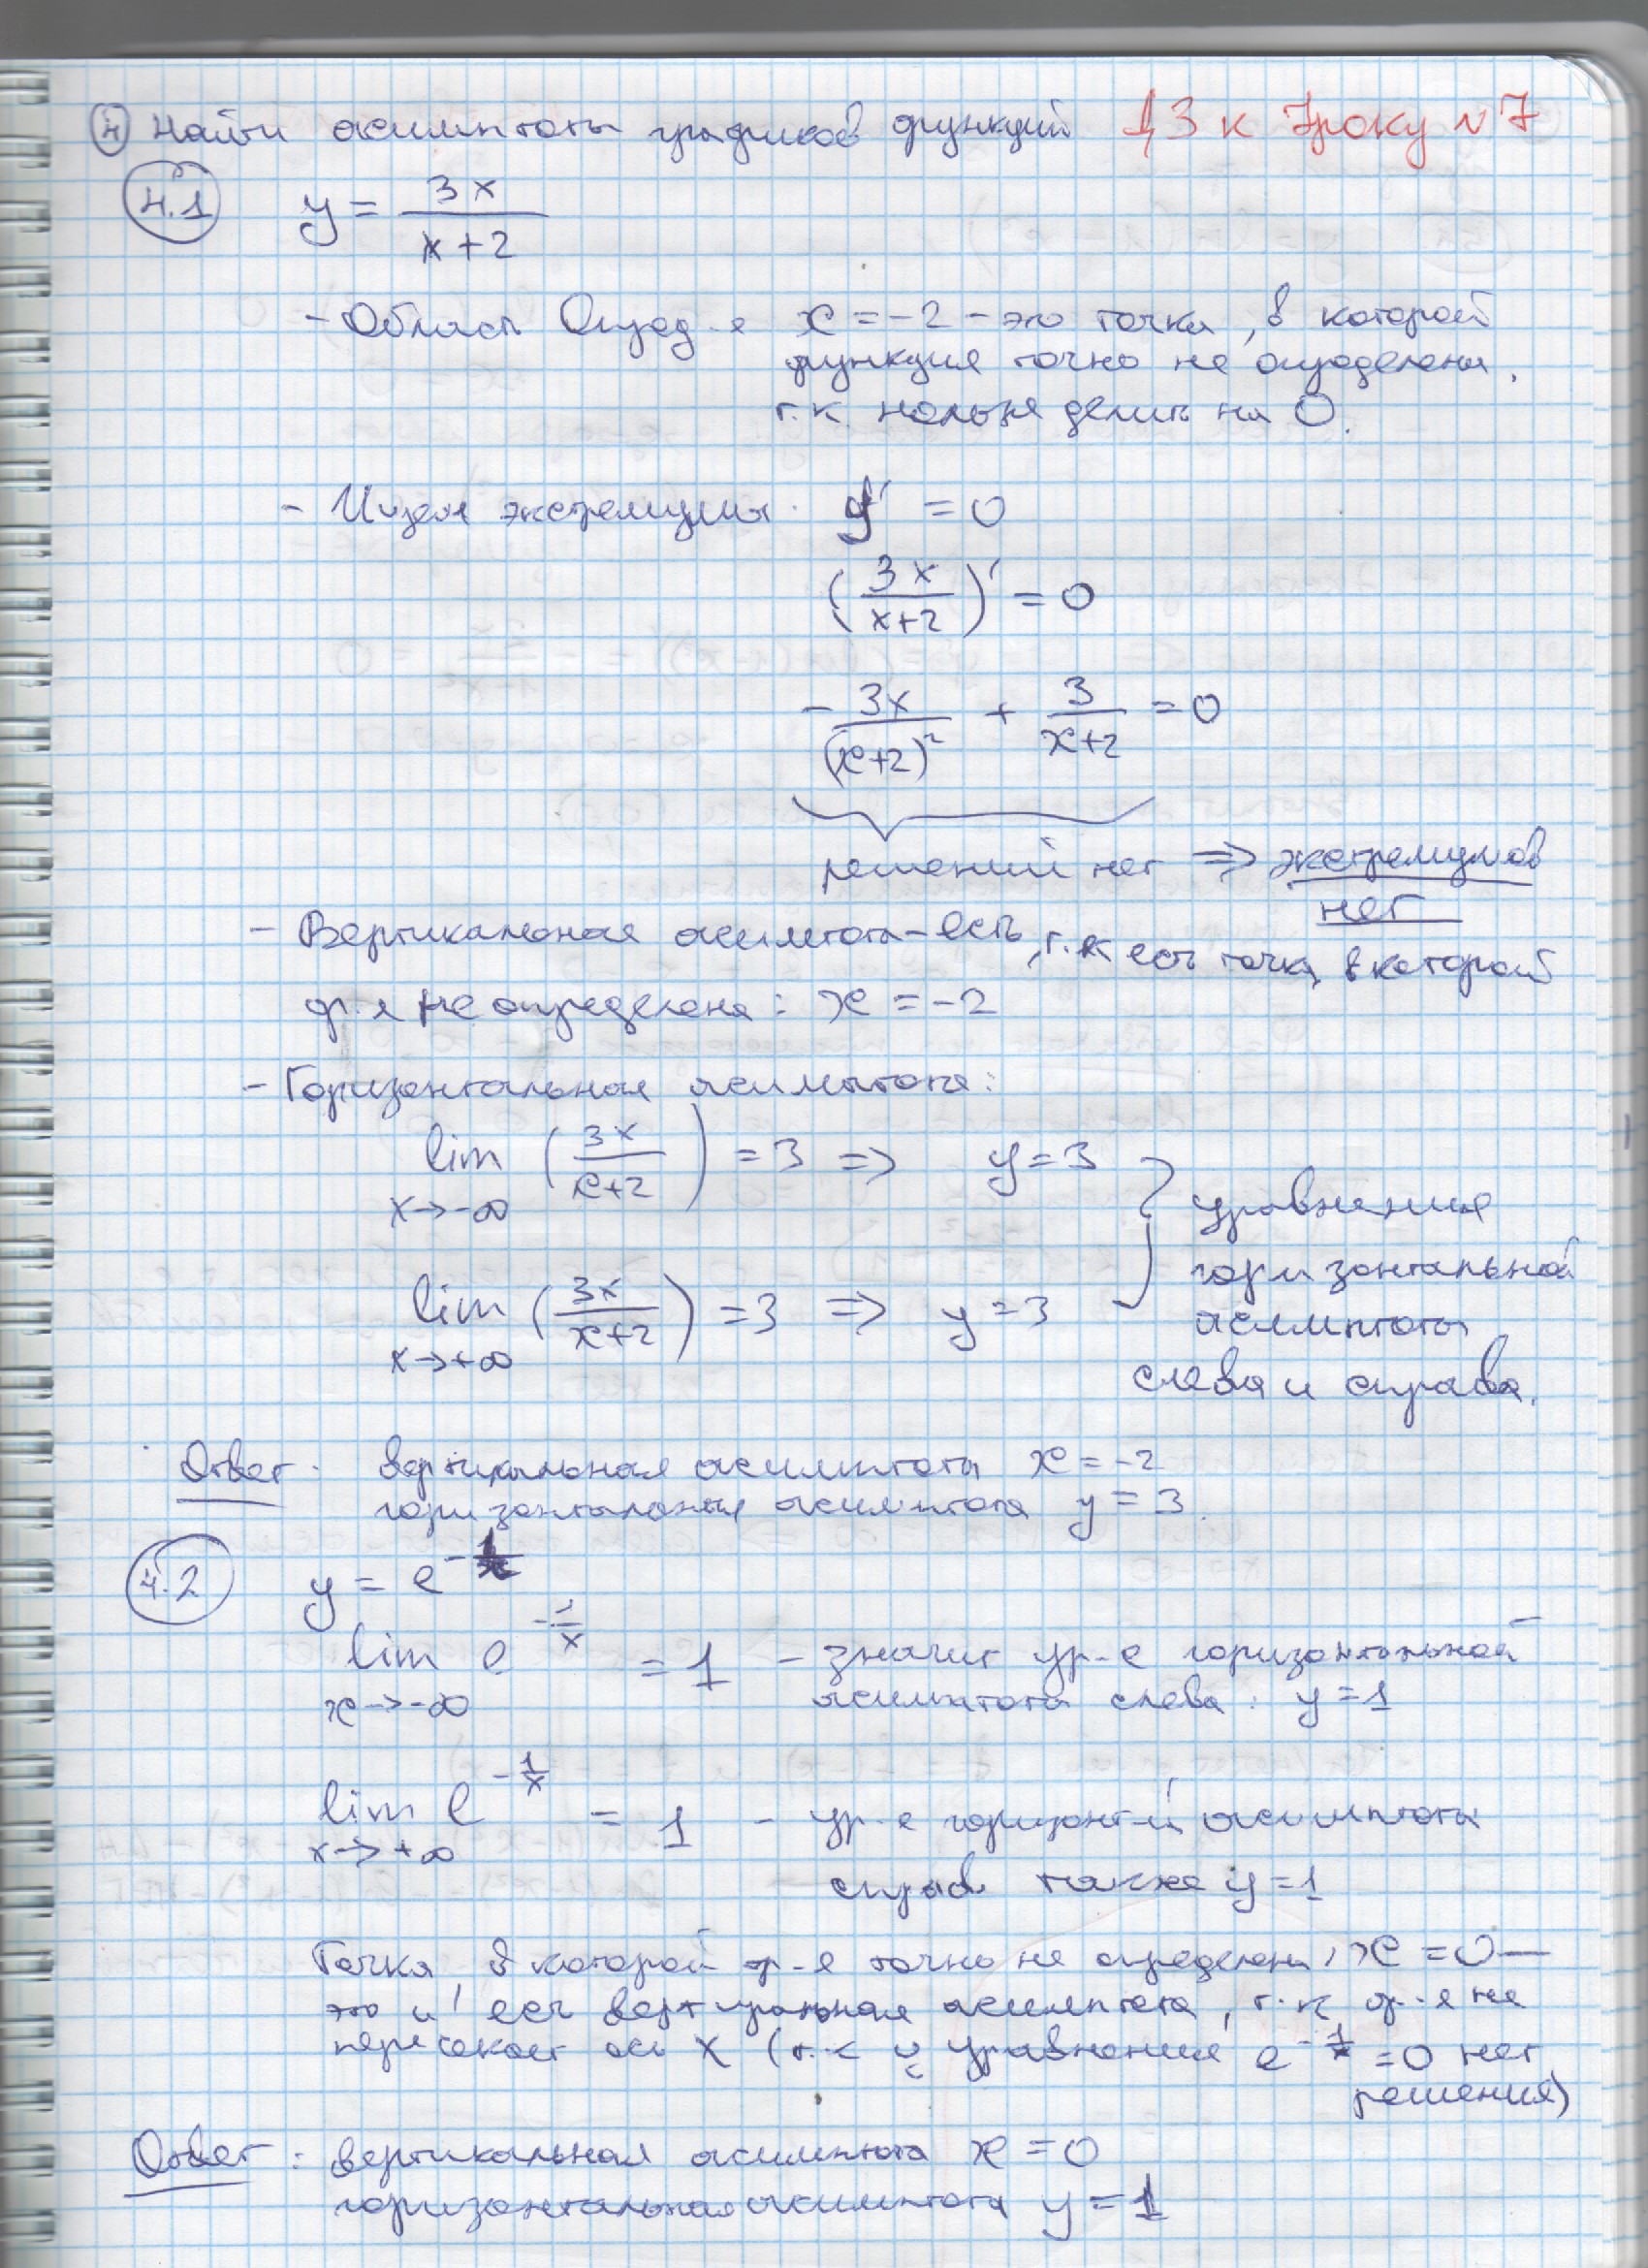 ④ Найти асимптоты графиков функций ДЗ к Уроку №7
4.1 y = 3x / (x+2)
- Область Опред-я x = -2 - это точка, в которой
функция точно не определена,
т.к. нельзя делить на 0.
- Ищем экстремумы. y' = 0
(3x / (x+2))' = 0
- 3x / (x+2)² + 3 / (x+2) = 0
решений нет => экстремумов
нет
- Вертикальная асимптота - есть, т.к. есть точка, в которой
ф-я не определена: x = -2
- Горизонтальная асимптота:
lim x→-∞ (3x / (x+2)) = 3 => y = 3
lim x→+∞ (3x / (x+2)) = 3 => y = 3
уравнения
горизонтальной
асимптоты
слева и справа.
Ответ. вертикальная асимптота x = -2
горизонтальная асимптота y = 3.
4.2 y = e^(-1/x)
lim x→-∞ e^(-1/x) = 1 - значит ур-е горизонтальной
асимптоты слева: y = 1
lim x→+∞ e^(-1/x) = 1 - ур-е горизонт-й асимптоты
справа также y = 1
Точка, в которой ф-я точно не определена, x = 0 —
это и есть вертикальная асимптота, т.к ф-я не
пересекает ось X (т.к у уравнения e^(-1/x) = 0 нет
решения)
Ответ: вертикальная асимптота x = 0
горизонтальная асимптота y = 1